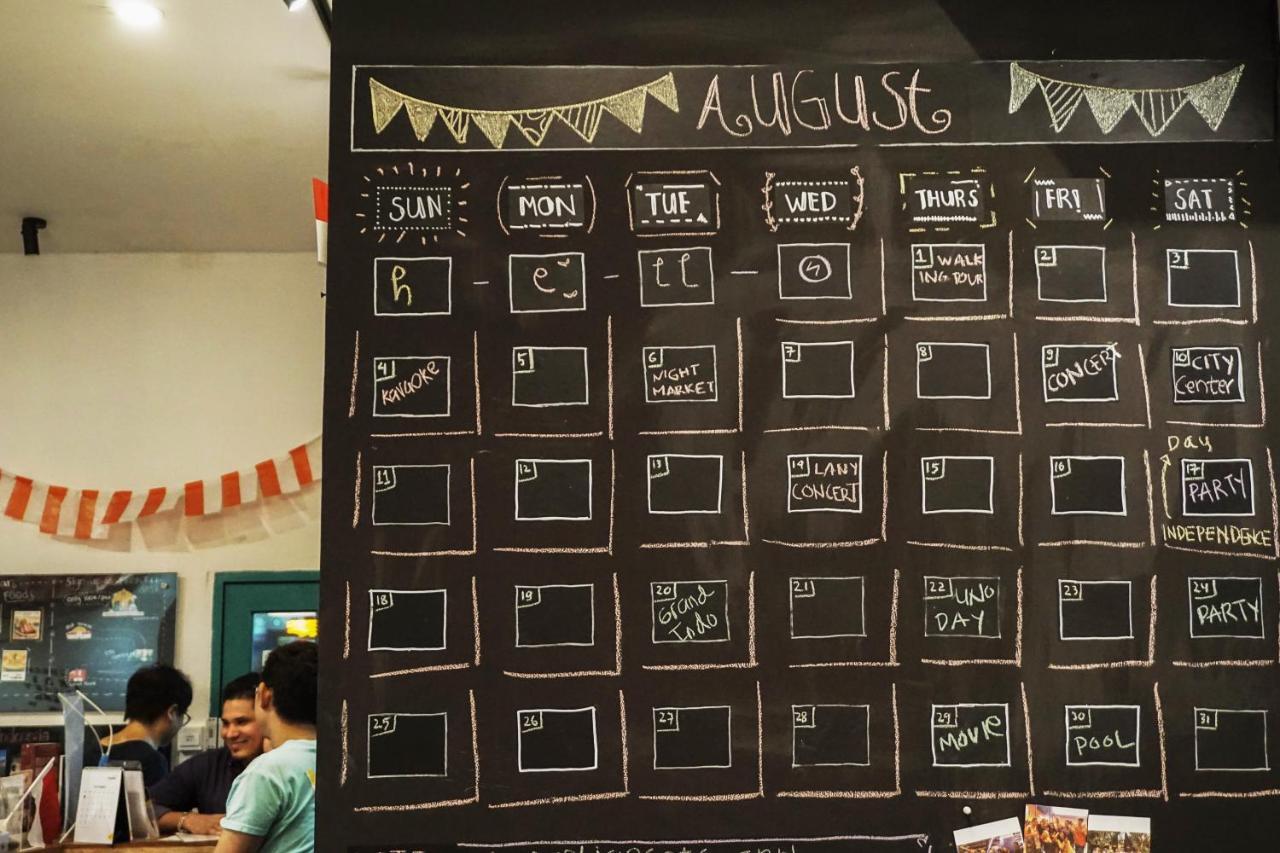 AUGUSt
SUN MON TUE WED THURS FRI SAT
h - e - ll - o 1 WALK 2 3
ING TOUR
4 5 6 7 8 9 10 CITY
Karaoke NIGHT CONCERT Center
MARKET
Day
11 12 13 14 LANY 15 16 17
CONCERT PARTY
INDEPENDENCE
18 19 20 21 22 UNO 23 24
Grand DAY PARTY
Indo
25 26 27 28 29 30 31
MOVIE POOL
FOODS